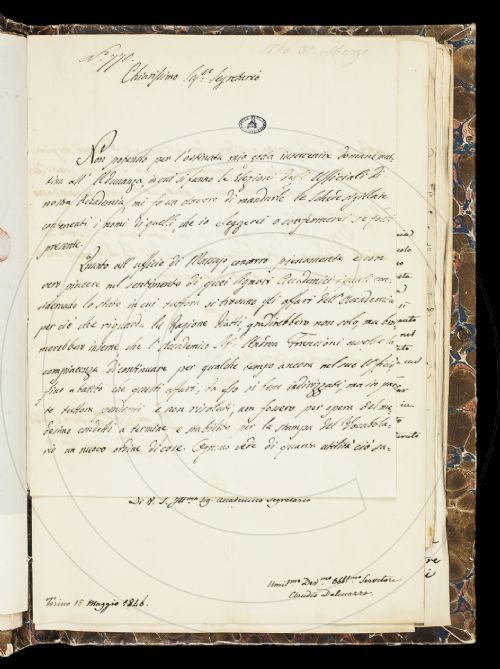 N.° 771.
31. Marzo
Chiarissimo Sig.re Segretario
Non potendo per l'ostinata mia tosse intervenire domane mat-
tina all'Adunanza, in cui si fanno le Elezioni degli Uffiziali di
nostra Accademia, mi fo un dovere di mandarle le schede sigillate
contenenti i nomi di quelli, che io eleggerei o confermerei se fossi
presente.
Quanto all'uffizio di Massajo concorro pienamente e con
vero piacere nel sentimento di quei Signori Accademici i quali con-
siderando lo stato in cui tuttora si trovano gli affari dell'Accademia
per ciò che riguarda la Ragione gradirebbero non solo, ma bra-
merebbero insieme che l'Accademico Sig.r avesse la
compiacenza di continuare per qualche tempo ancora nel suo Uffizio
fino a tanto che questi affari, da Esso sì bene indirizzati, ma in par-
te tuttora pendenti e non risoluti, non fossero per opera del me-
desimo condotti a termine e stabilito per la stampa del Vocabola-
rio un nuovo ordine di cose. Ognun vede di quanta utilità ciò sa-
Di V. S. Ill.ma Sig. Accademico Segretario
Umil.mo Dev.mo Obbl.mo Servitore
Claudio Dalmazzo.
Torino 15 Maggio 1846.